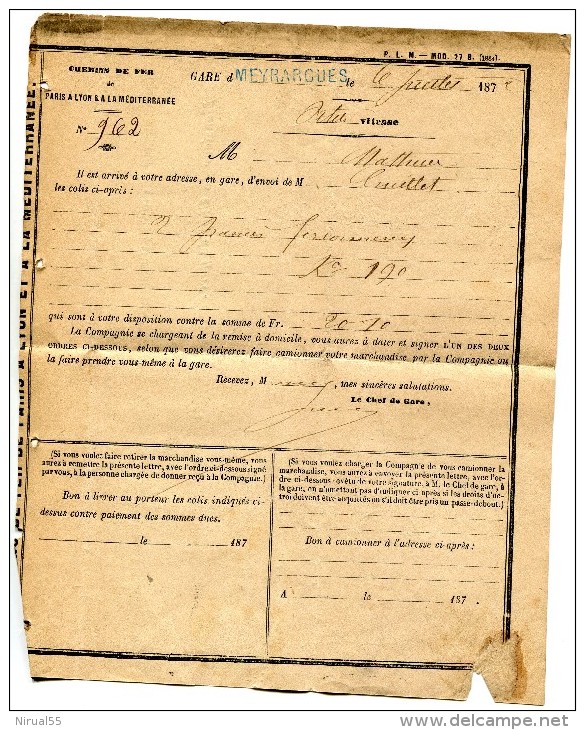 P. L. M. — MOD. 27 B. (1884).
CHEMINS DE FER
de
PARIS A LYON & A LA MÉDITERRANÉE
GARE d MEYRARGUES le 6 Juillet 187
Nº 962
Petite vitesse
M Matthieu
Il est arrivé à votre adresse, en gare, d'envoi de M
les colis ci-après :
2
Ko 190
qui sont à votre disposition contre la somme de Fr. 20 10
La Compagnie se chargeant de la remise à domicile, vous aurez à dater et signer L'UN DES DEUX
ORDRES CI-DESSOUS, selon que vous désirerez faire camionner votre marchandise par la Compagnie ou
la faire prendre vous-même à la gare.
Recevez, M , mes sincères salutations.
Le Chef de Gare,
(Si vous voulez faire retirer la marchandise vous-même, vous
aurez à remettre la présente lettre, avec l'ordre ci-dessous signé
par vous, à la personne chargée de donner reçu à la Compagnie.)
Bon à livrer au porteur les colis indiqués ci-
dessus contre paiement des sommes dues.
le 187
(Si vous voulez charger la Compagnie de vous camionner la
marchandise, vous aurez à envoyer la présente lettre, avec l'or-
dre ci-dessous revêtu de votre signature, à M. le Chef de gare, à
la gare, en n'omettant pas d'indiquer ci après si les droits d'oc-
troi doivent être acquittés ou s'il doit être pris un passe-debout.)
Bon à camionner à l'adresse ci-après :
A le 187 .
DE FER DE PARIS A LYON ET A LA MÉDITERRANÉE.
Nirual55
© delcampe.net